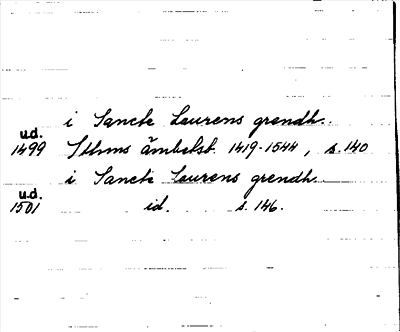 i Sancte Laurens grendh..
u.d.
1499 Sthms ämbetsb. 1419-1544, s. 140
i Sancte Laurens grendh.
u.d.
1501 id. s. 146.